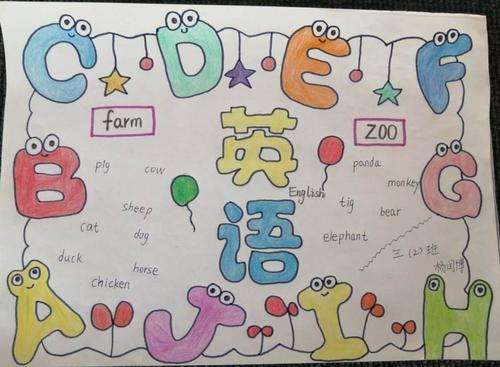 C D E F
farm
英语
English
ZOO
B
G
pig
cow
sheep
cat
dog
duck
horse
chicken
panda
monkey
tig
bear
elephant
三(2)班
A J I H